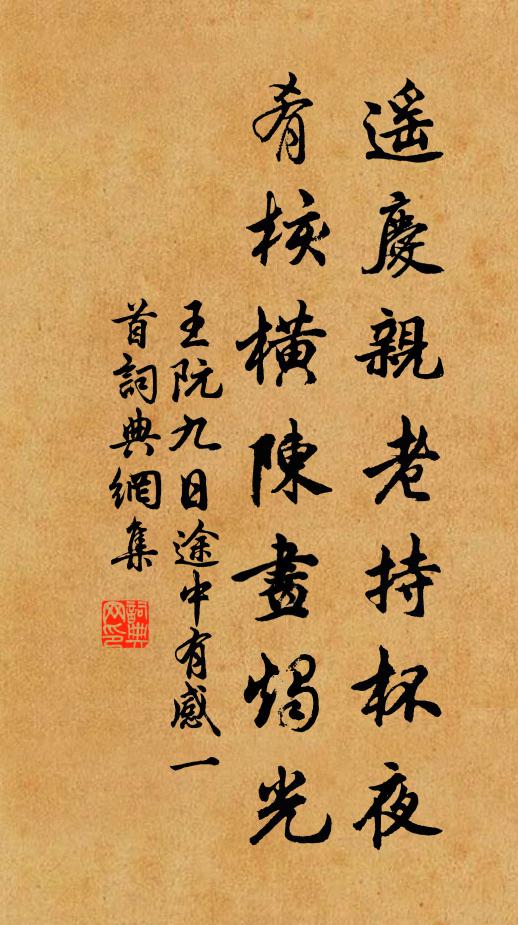 遥慶親老持杯夜
肴核橫陳畫燭光
王阮九日途中有感一
首詞典網集
詞典
网印